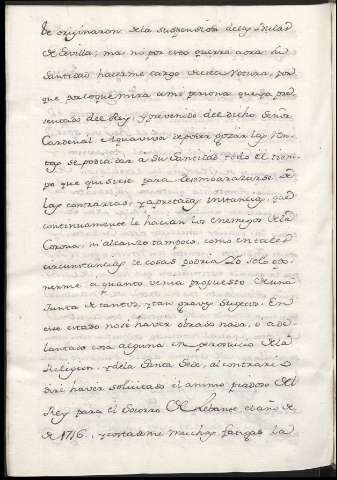 se originaron de la suspension de las Bulas
de Sevilla; ma no por esto querrá aora Su
Santidad hacerme cargo de esta rotura, por
que por lo que mira a mi persona que ya pre
sentado del Rey, y prevenido del dicho Señor
Cardenal Aquaviva de poder gozar los fru
tos se podia dar a Su Santidad todo el tiem
po que quisiese para desembarazarse de
las contrarias, y apretadas instancias, que
continuamente le hacian los enemigos de la
Corona; ni alcanzo tampoco, como en tales
circunstancias de cosas podria Yo solo opo
nerme a quanto venia propuesto de una
Junta de tantos, y tan graves sugetos. En
esse estado no se haver obrado nada, o ade
lantado cosa alguna en perjuicio de la
Religion, y de la Santa Sede, al contrario
diré haver solicitado el animo piadoso del
Rey para el Socorro de Levante el año de
de 1716, y costadome muchas fatigas la